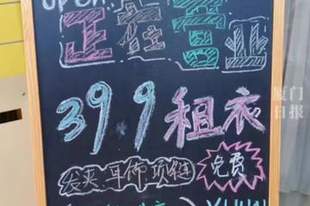 OPEN
正在营业
399租衣
发夹 耳饰 项链 免费
厦门
日报